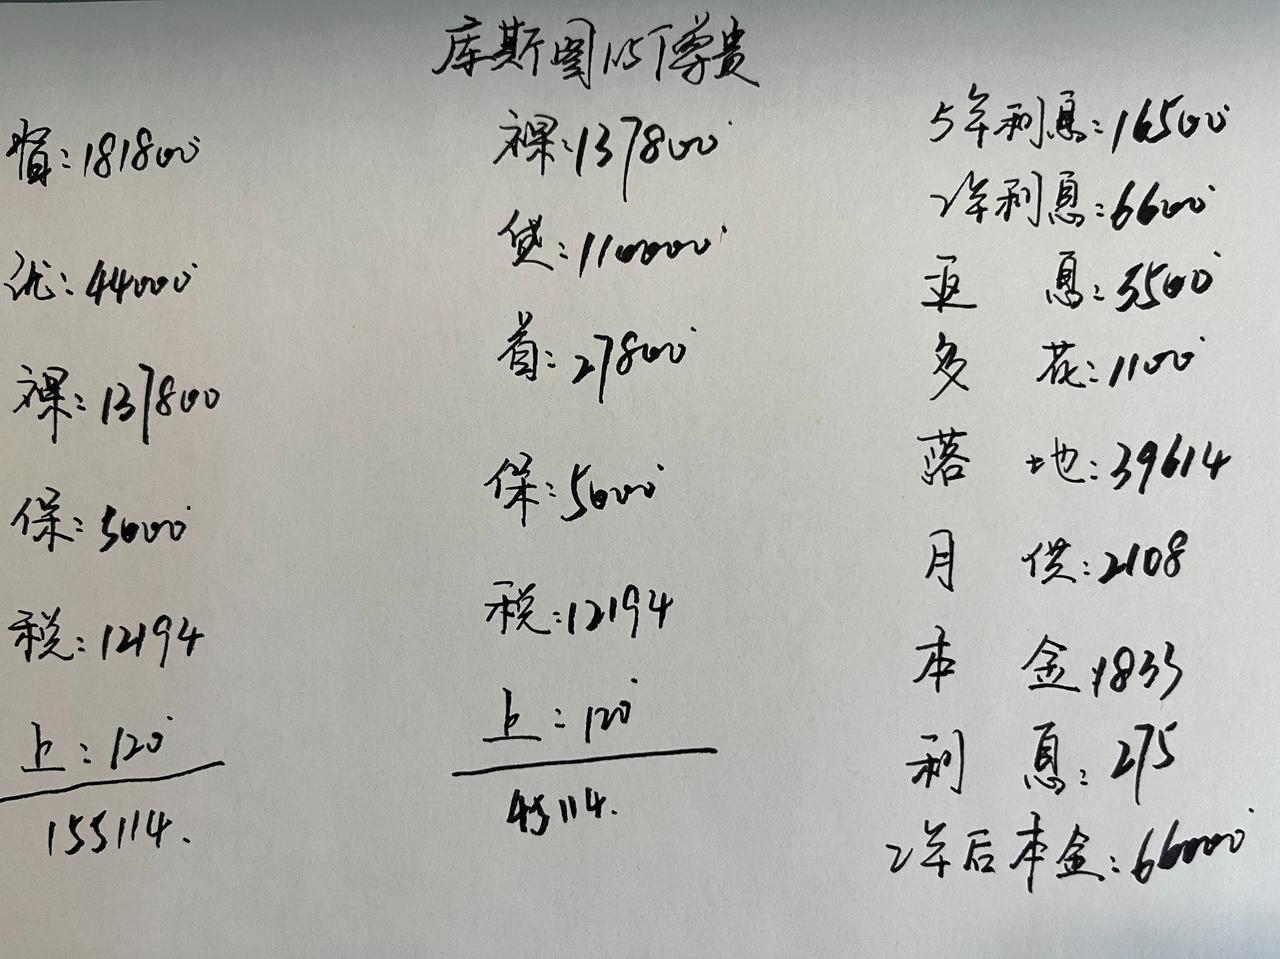 库斯图1.5T尊贵
指:181800
优:44000
裸:137800
保:5000
税:12194
上:120
155114.
裸:137800
贷:110000
首:27800
保:5000
税:12194
上:120
45114.
5年利息:16500
2年利息:6600
返 息:5500
多 花:1100
落 地:39614
月 供:2108
本 金:1833
利 息:275
2年后本金:66000